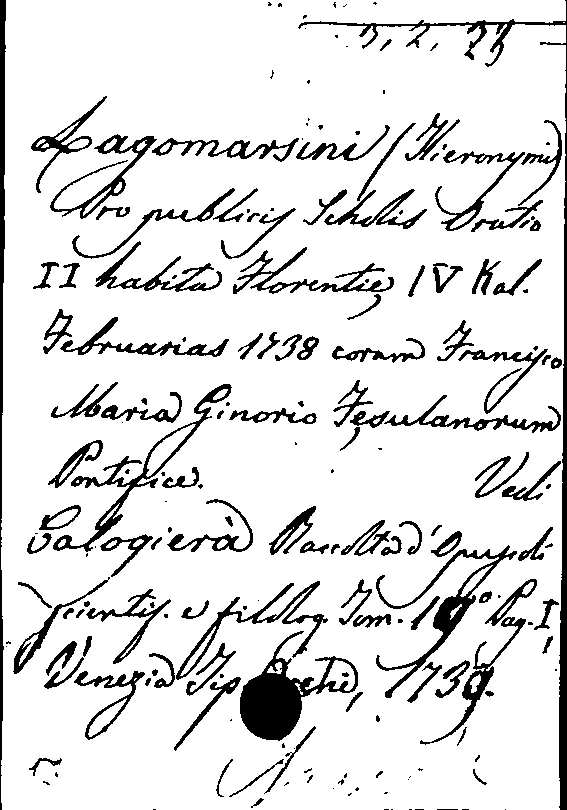 3, 2, 23
Lagomarsini (Hieronymi)
Pro publicis Scholis Oratio
II habita Florentię IV Kal.
Februarias 1738 coram Francisco
Maria Ginorio Fęsulanorum
Pontifice. Vedi
Calogierà Raccolta d'Opuscoli
scientif. e filolog. Tom. 19º Pag. I,
Venezia Tip. 1739.